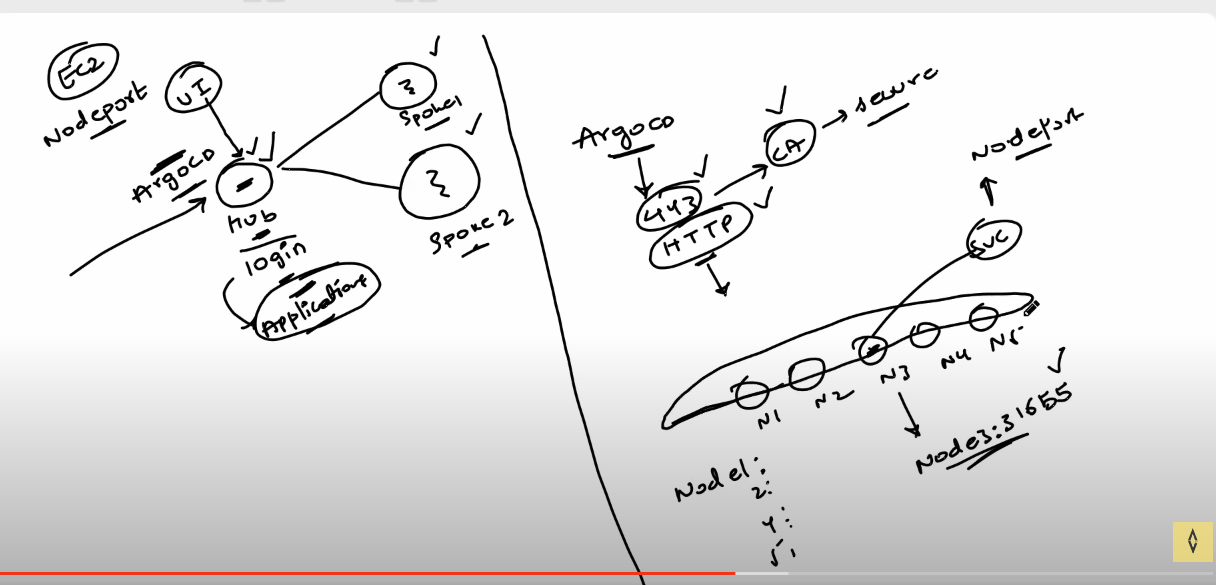 EC2
Nodeport
UI
ArgoCD
Hub
login
Applications
Spoke1
Spoke 2
ArgoCD
443
HTTP
CA
secure
Nodeport
SVC
N1
N2
N3
N4
N5
Node3:31655
Node1:
2:
4:
5: